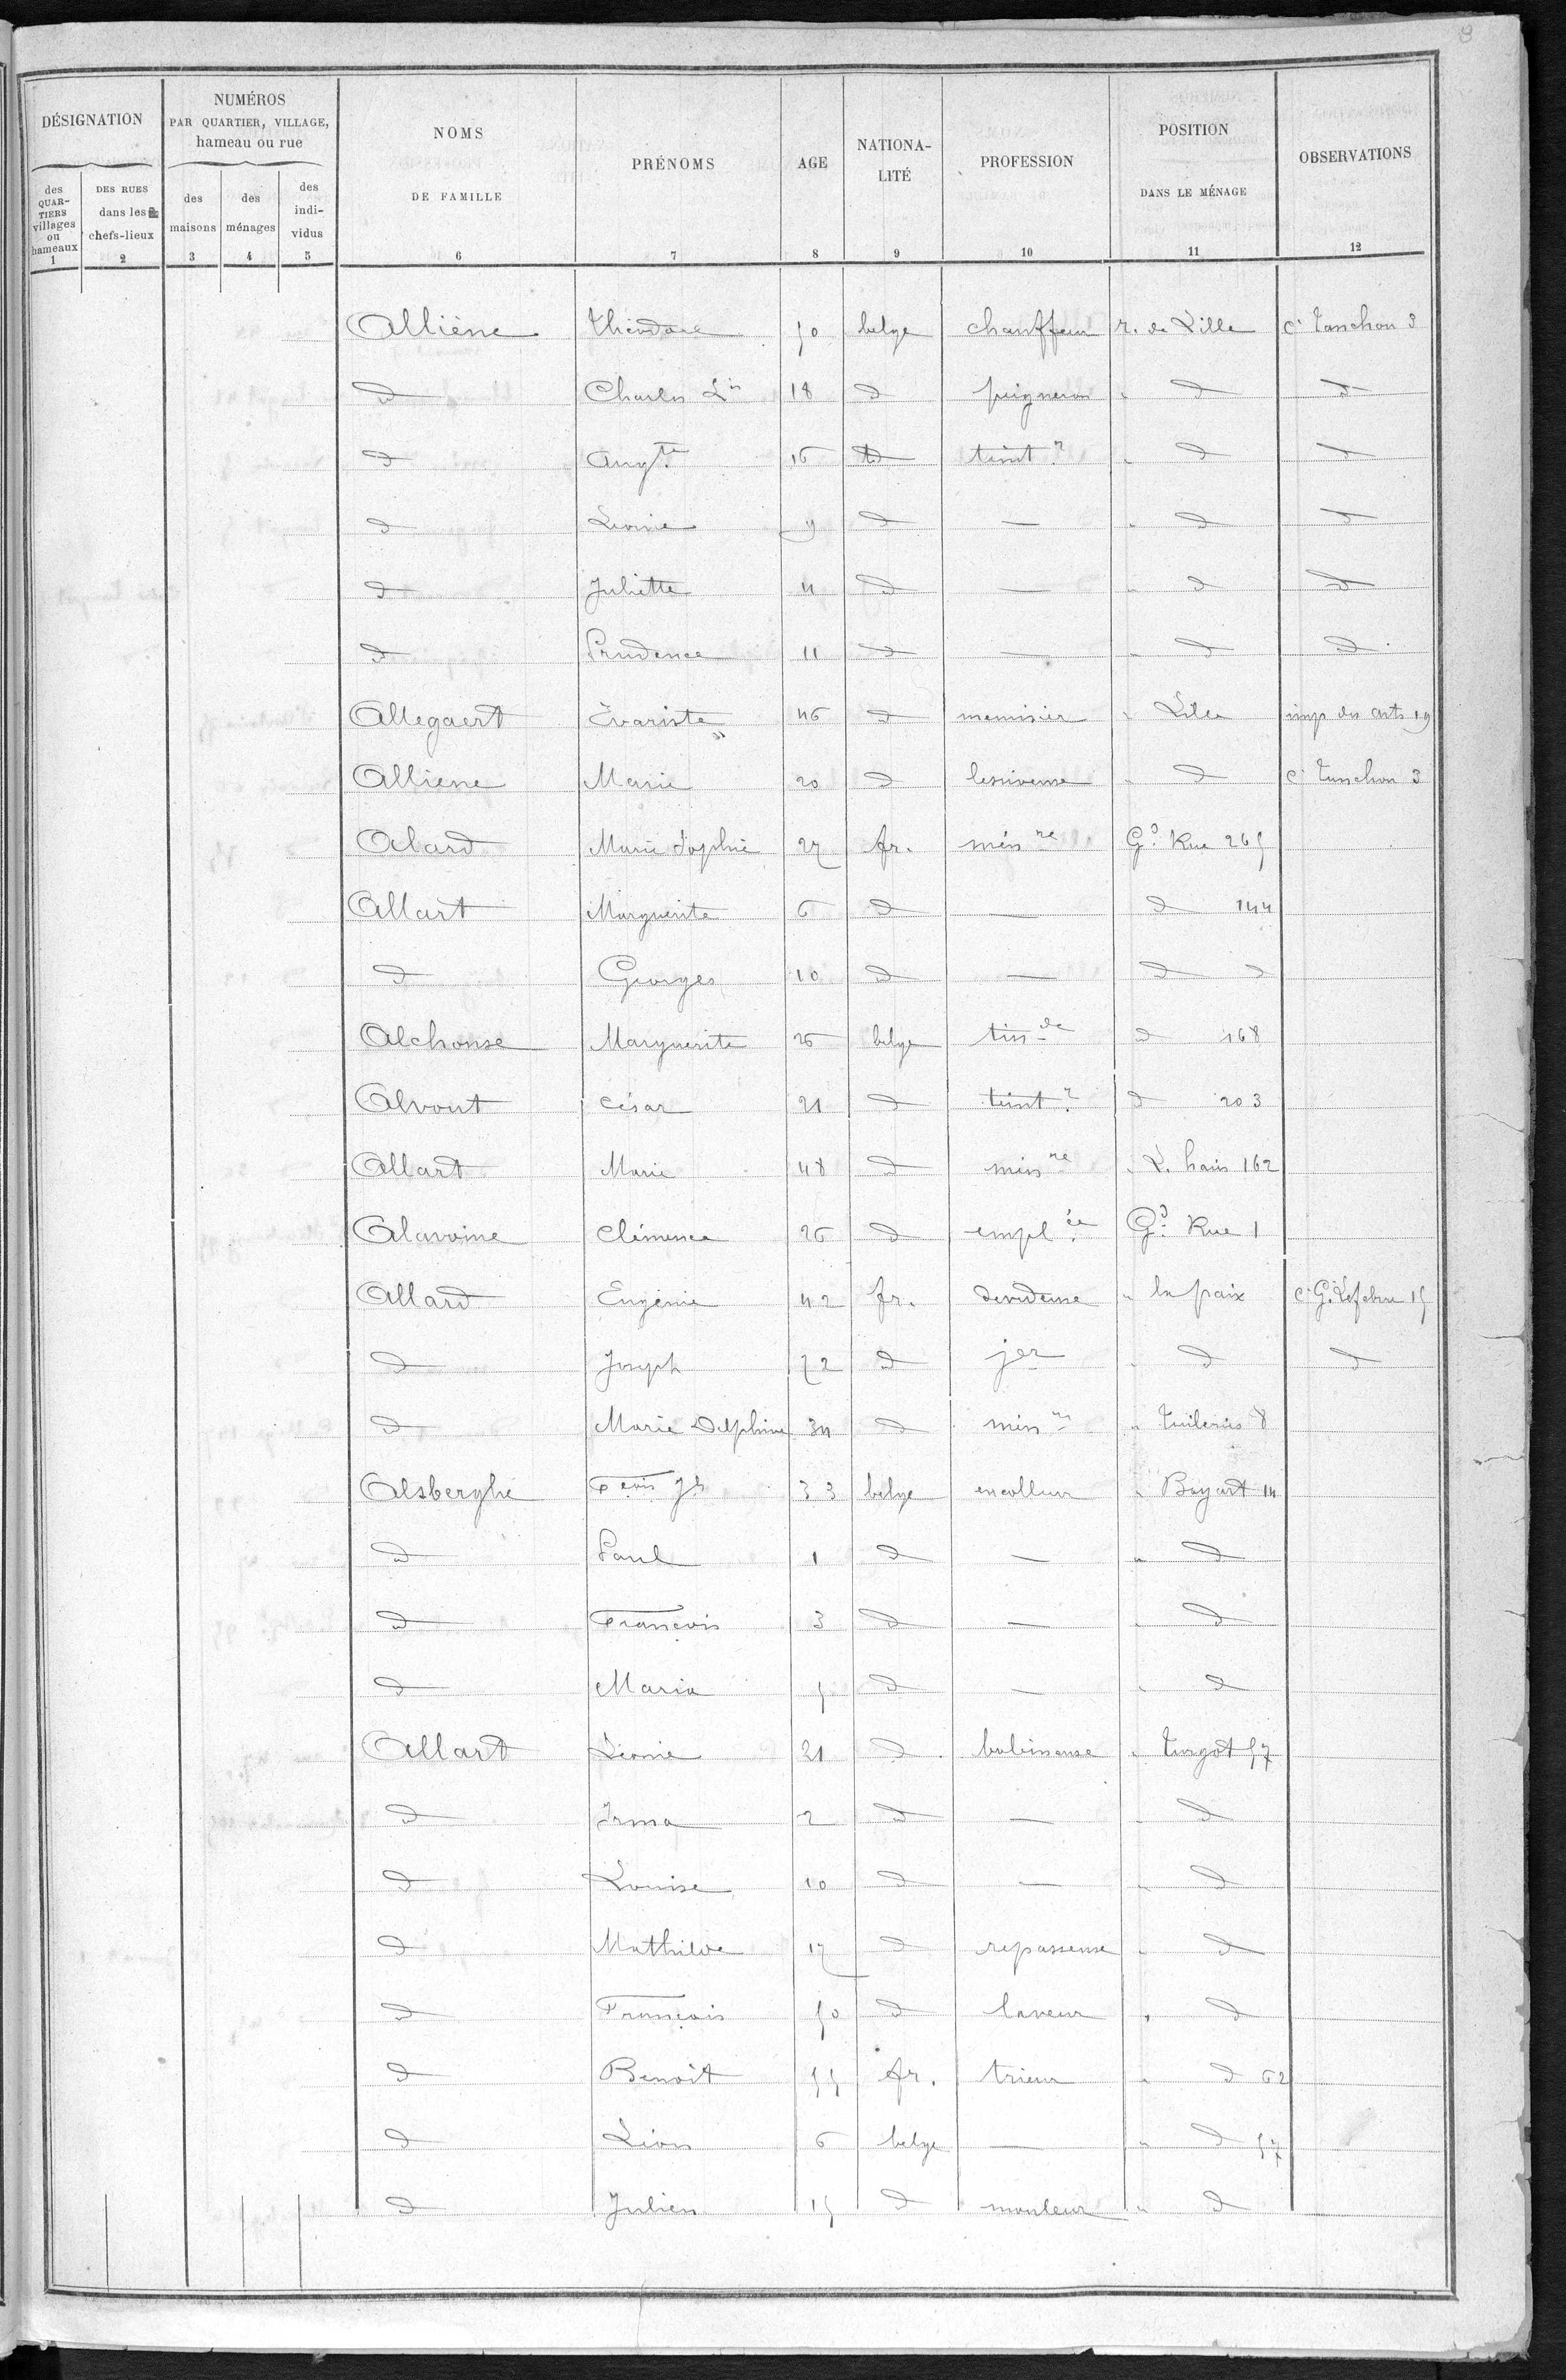 8
DÉSIGNATION
NUMÉROS
PAR QUARTIER, VILLAGE,
hameau ou rue
NOMS
DE FAMILLE
PRÉNOMS
AGE
NATIONA-
LITÉ
PROFESSION
POSITION
DANS LE MÉNAGE
OBSERVATIONS
des
QUAR-
TIERS
villages
ou
hameaux
DES RUES
dans les
chefs-lieux
des
maisons
des
ménages
des
indi-
vidus
1 2 3 4 5 6 7 8 9 10 11 12
Alliène Théodore 50 belge chauffeur r. de Lille Cr Tanchon 3
d Charles Lis 18 d peigneron " d d
d Augte 16 d teintr " d d
d Léonie 9 d — " d d
d Juliette 4 d — " d d
d Prudence 11 d — " d d
Allegaert Évariste 46 d menuisier " Lille imp des arts 19
Alliene Marie 20 d lessiveuse " d Cr Tanchon 3
Alard Marie Sophie 27 fr. ménre Gd Rue 265
Allart Marguerite 6 d — d 144
d Georges 10 d — d d
Alchouse Marguerite 26 belge tisde d 168
Alvout César 21 d teintr d 203
Allart Marie 48 d ménre " L. haies 162
Alavoine Clémence 26 d emplée Gd Rue 1
Allard Eugénie 42 fr. devideuse " la paix Cr G. Lefebvre 15
d Joseph 72 d jer " d d
d Marie Delphine 34 d ménre " Tuileries 8
Alsberghe Fcois Jh 33 belge encolleur " Bayart 14
d Paul 1 d — " d
d François 3 d — " d
d Maria 5 d — " d
Allart Léonie 21 d bobineuse " Turgot 57
d Irma 2 d — " d
d Louise 10 d — " d
d Mathilde 17 d repasseuse " d
d François 50 d laveur " d
d Benoît 55 fr. trieur " d 62
d Léon 6 belge — " d 57
d Julien 15 d mouleur " d